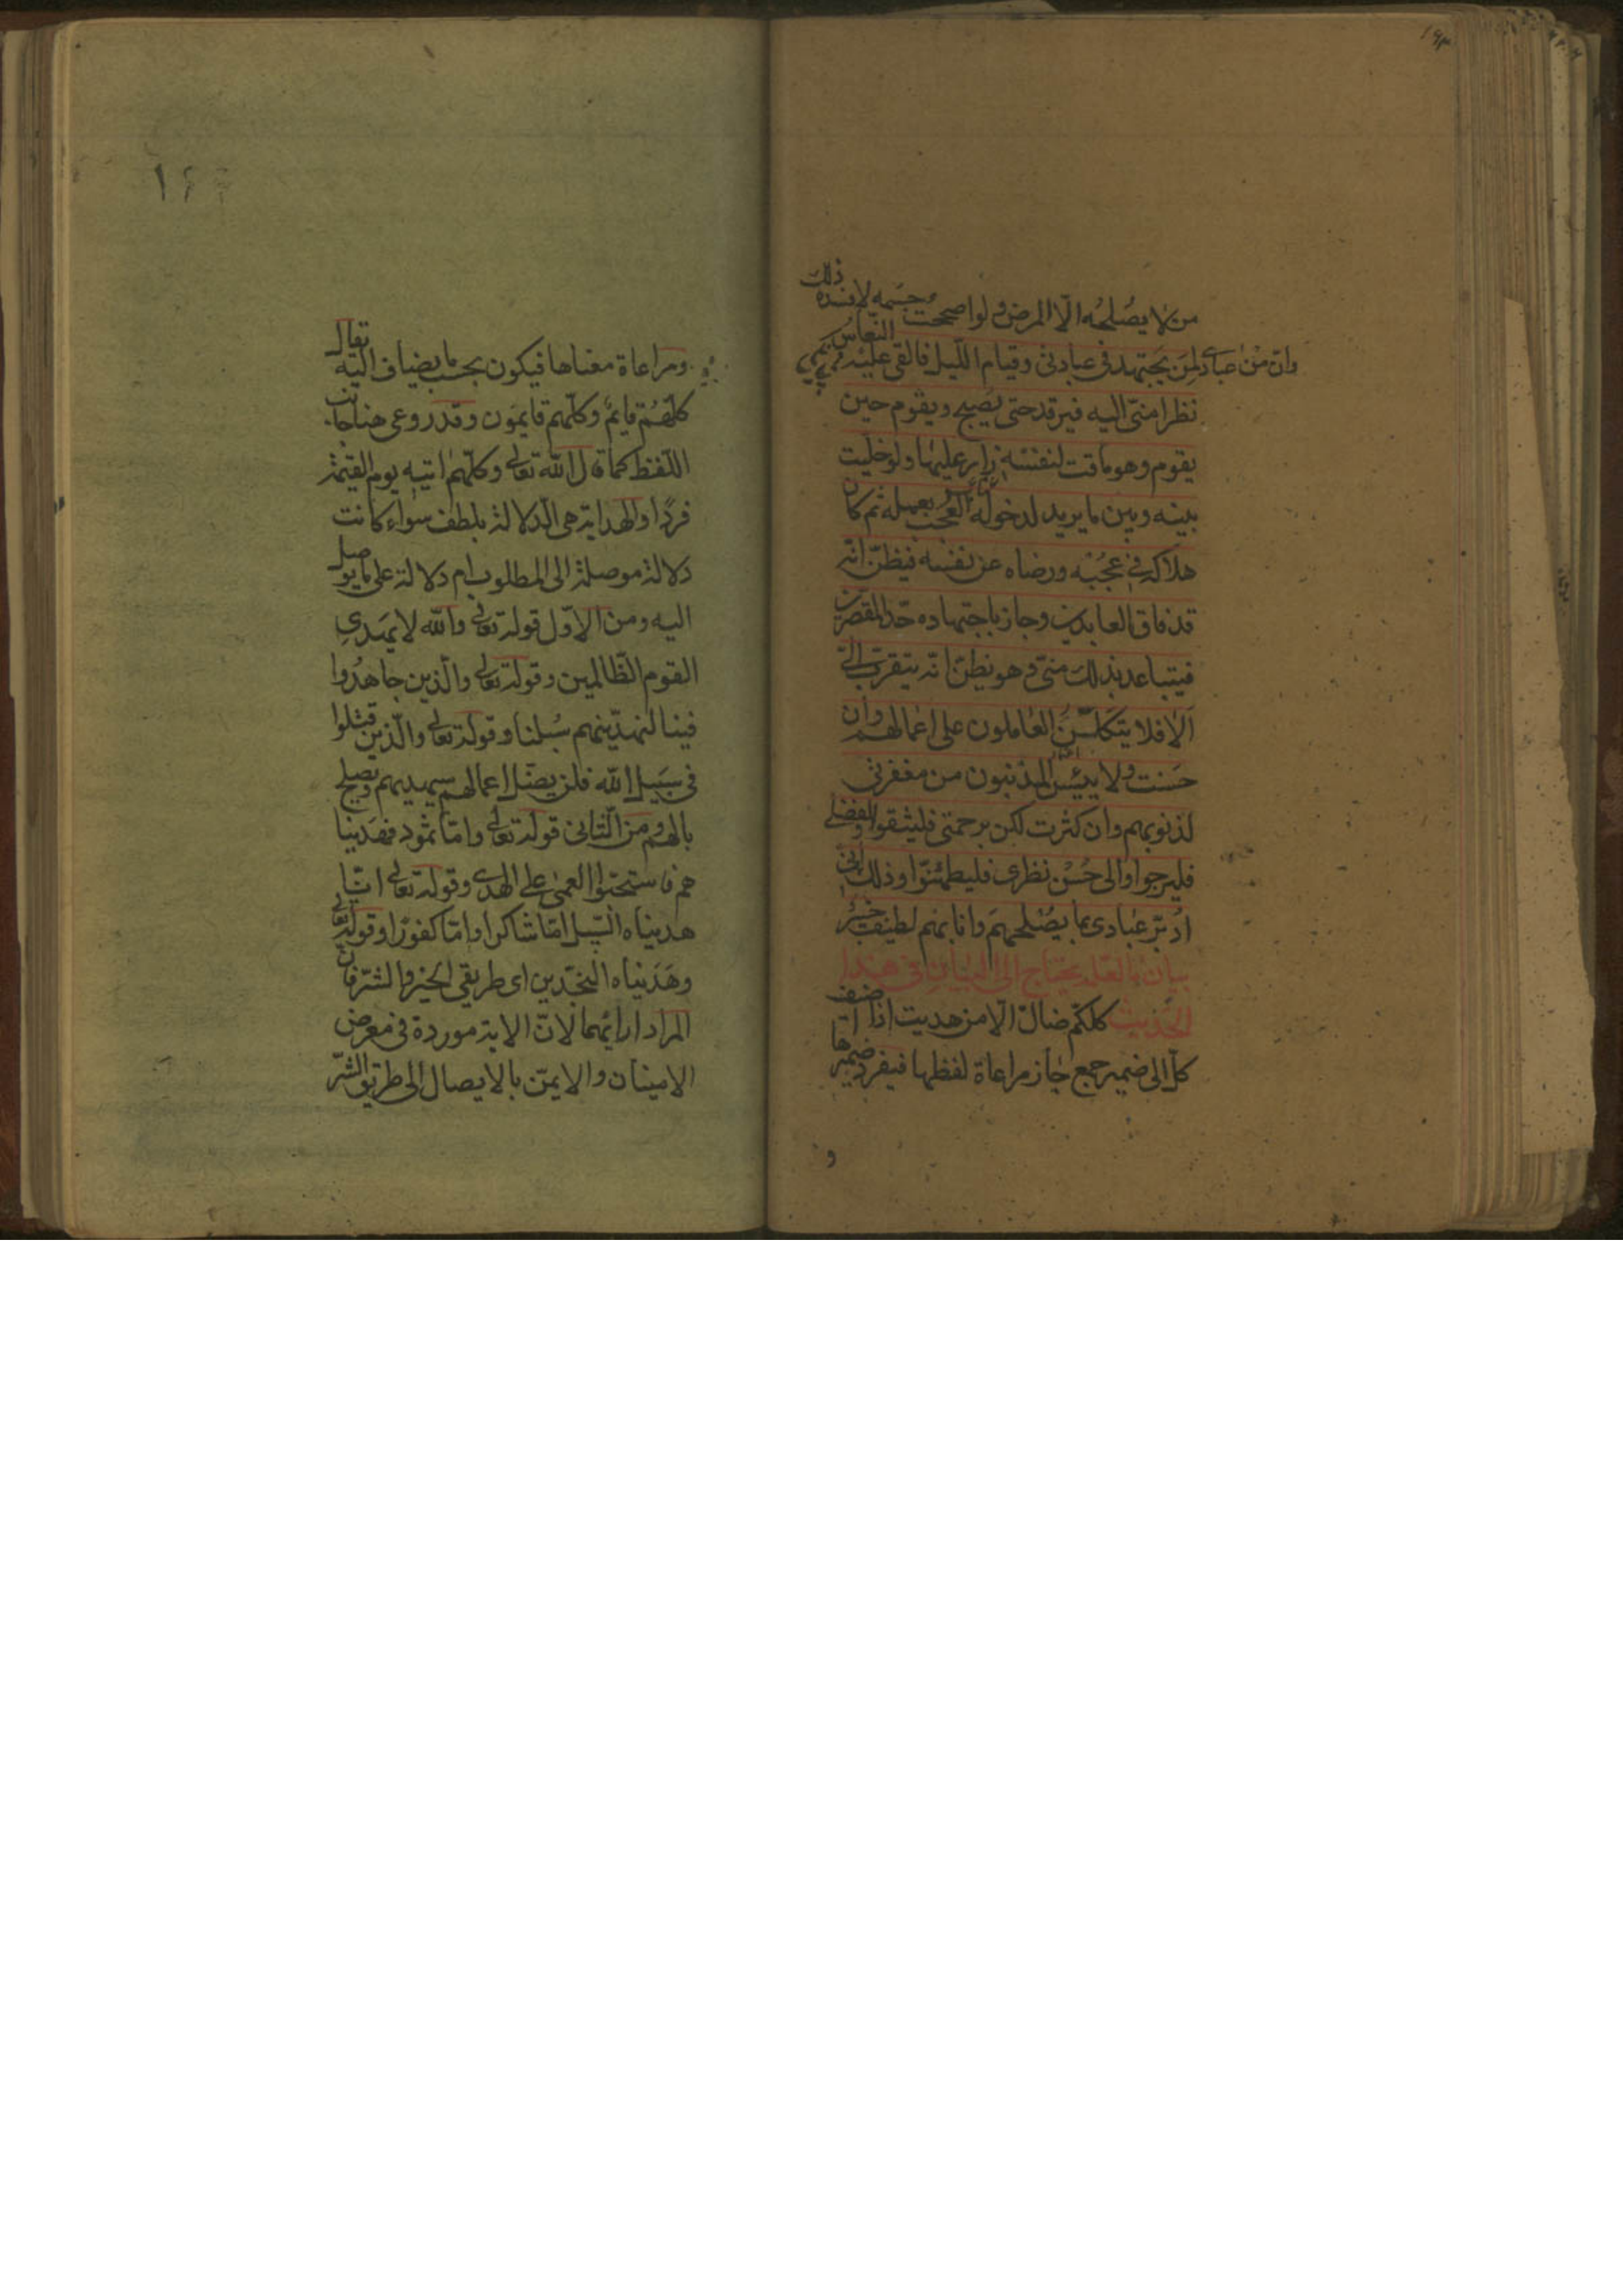 ١٩٣
من لا يصلحه الّا المرض ولو اصححت جسمه لافسده ذلك
وانّ من عبادي لمن يجتهد في عبادتي وقيام اللّيل فالقي عليه النّعاس
نظرا منّي اليه فيرقد حتى يصبح ويقوم حين
يقوم وهو ماقت لنفسه زار عليها ولو خليت
بينه وبين ما يريد لدخوله العجب بعمله ثم كان
هلاكه في عجبه ورضاه عن نفسه فيظنّ انّه
قد فاق العابدين وجاز باجتهاده حدّ المقصرين
فيتباعد بذلك منّي وهو يظنّ انّه يتقرب اليّ
الا فلا يتكلنّ العاملون على اعمالهم وان
حسنت ولا ييئس المذنبون من مغفرتي
لذنوبهم وان كثرت لكن برحمتي فليثقوا ولفضلي
فليرجوا والى حسن نظري فليطمئنّوا وذلك انّي
ادبّر عبادي بما يصلحهم وانا بهم لطيف خبير
بيان ما لعلّه يحتاج الى البيان في هذا
الحديث كلكم ضالّ الّا من هديت اذا اضيف
كلّ الى ضمير جمع جاز مراعاة لفظها فيفرد ضميرها
و
ومراعاة معناها فيكون بحسب ما يضاف اليه يقال
كلّهم قايم وكلّهم قايمون وقد روعي هنا جانب
اللّفظ كما قال الله تعالى وكلّهم اتيه يوم القيمة
فردًا والهداية هي الدّلالة بلطف سواء كانت
دلالة موصلة الى المطلوب ام دلالة على ما يوصل
اليه ومن الاوّل قوله تعالى والله لا يهدي
القوم الظّالمين وقوله تعالى والّذين جاهدوا
فينا لنهدينهم سبلنا وقوله تعالى والّذين قتلوا
في سبيل الله فلن يضلّ اعمالهم سيهديهم ويصلح
بالهم ومن الثّاني قوله تعالى وامّا ثمود فهدينا
هم فاستحبّوا العمى على الهدى وقوله تعالى انّا
هديناه السّبيل امّا شاكرا وامّا كفورًا وقوله تعالى
وهديناه النجدين اى طريقي الخير والشرّ فان
المراد ارائهما لانّ الاية موردة في معرض
الامينان والايمنّ بالايصال الى طريق الشّر